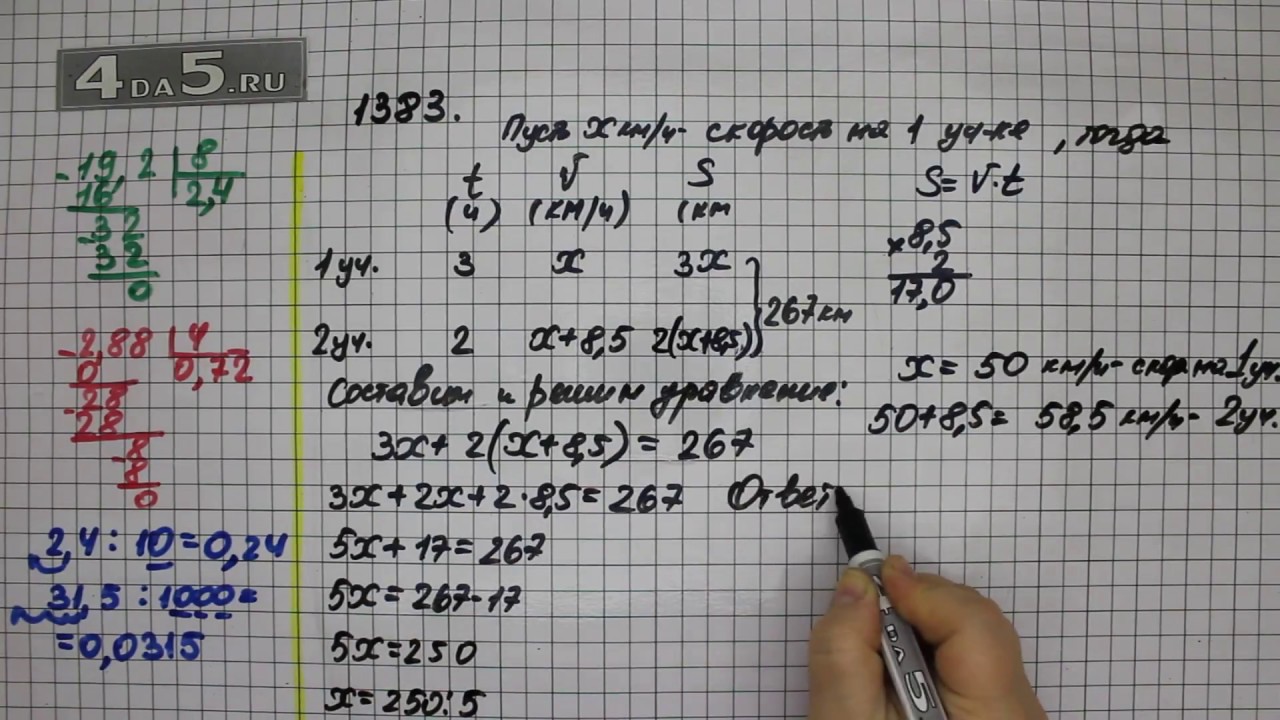 4DA5.RU
1383.
Пусть x км/ч - скорость на 1 уч-ке, тогда
t V S
(ч) (км/ч) (км
1уч. 3 x 3x
2уч. 2 x+8,5 2(x+8,5)
267км
S=V·t
×8,5
2
17,0
Составим и решим уравнение:
3x+2(x+8,5)=267
3x+2x+2·8,5=267
5x+17=267
5x=267-17
5x=250
x=250:5
x=50 км/ч-скор на 1уч.
50+8,5=58,5 км/ч-2уч.
Ответ
-19,2 | 8
16 2,4
-32
32
0
-2,88 | 4
0 0,72
-28
28
-8
8
0
2,4:10=0,24
31,5:1000=
=0,0315
+DA5